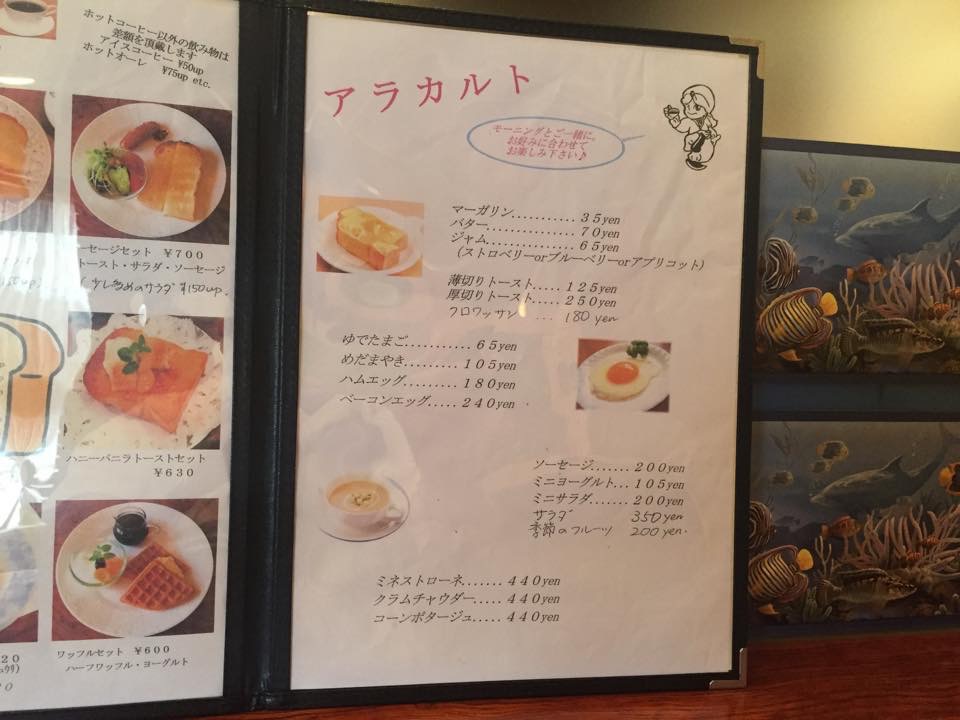 ホットコーヒー以外の飲み物は
差額を頂戴します
アイスコーヒー ¥50up
ホットオーレ ¥75up etc.
ーセージセット ¥700
トースト・サラダ・ソーセージ
少し多めのサラダ ¥150up.
ハニーバニラトーストセット
¥630
ワッフルセット ¥600
ハーフワッフル・ヨーグルト
アラカルト
モーニングとご一緒に、
お好みに合わせて
お楽しみ下さい♪
マーガリン...........35yen
バター...............70yen
ジャム...............65yen
(ストロベリーorブルーベリーorアプリコット)
薄切りトースト.....125yen
厚切りトースト.....250yen
クロワッサン ... 180yen
ゆでたまご...........65yen
めだまやき.........105yen
ハムエッグ.........180yen
ベーコンエッグ.....240yen
ソーセージ.......200yen
ミニヨーグルト...105yen
ミニサラダ.......200yen
サラダ 350yen
季節のフルーツ 200yen.
ミネストローネ.......440yen
クラムチャウダー.....440yen
コーンポタージュ.....440yen